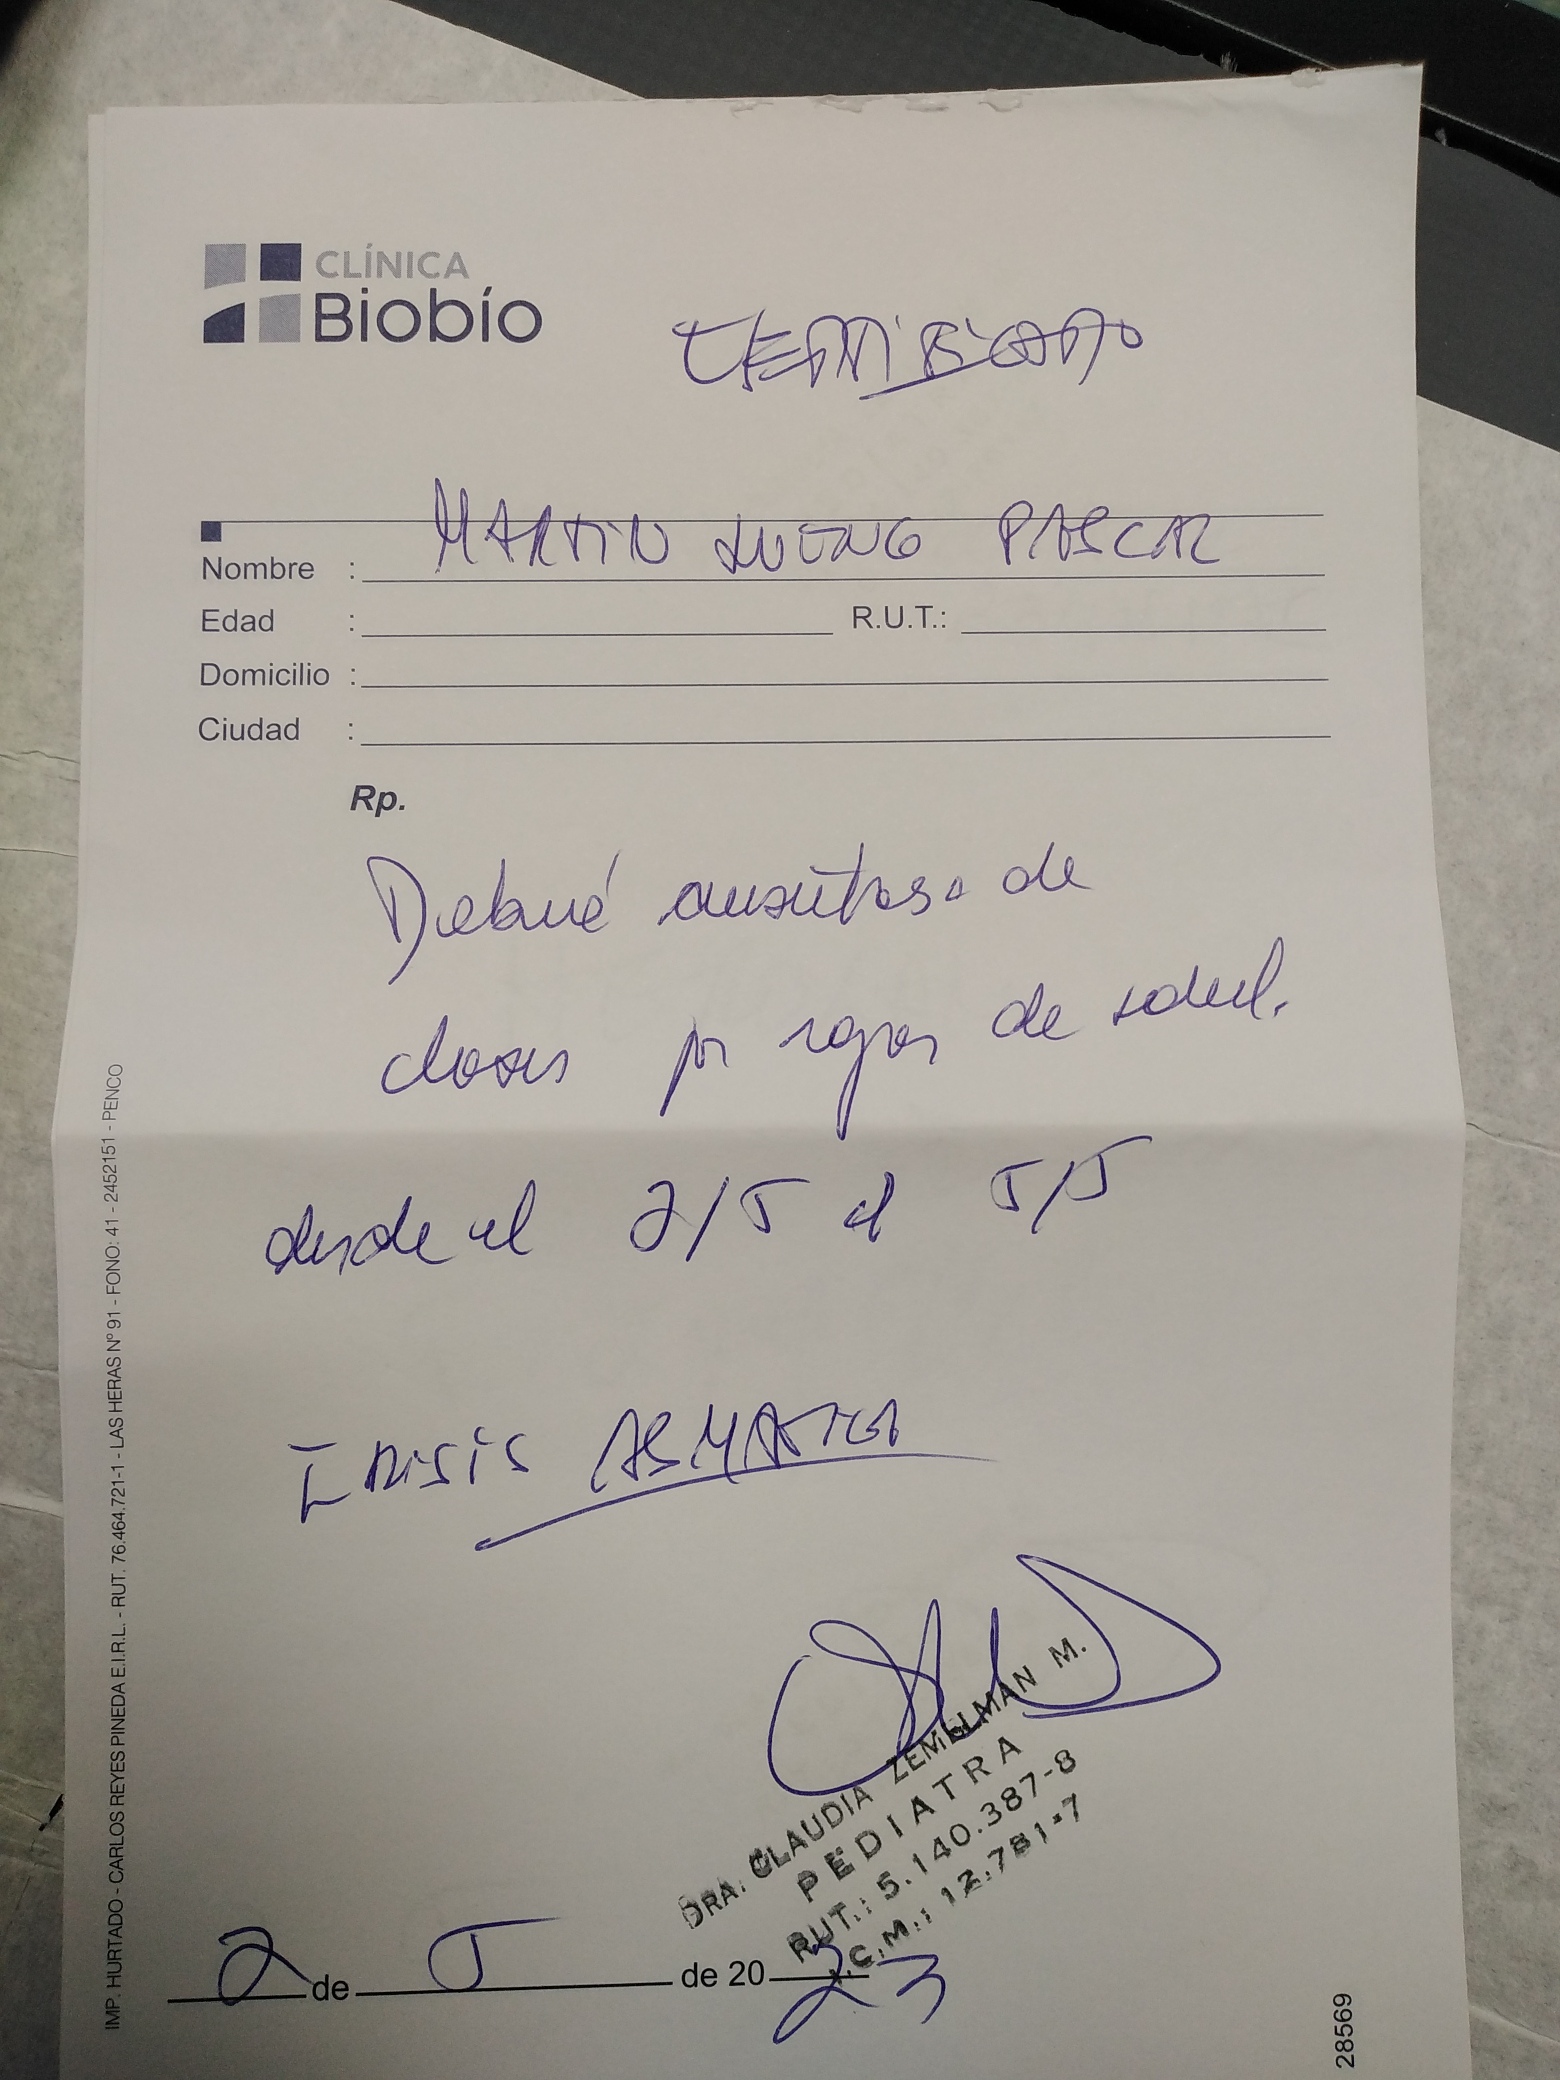 CLÍNICA
Biobío
CERTIFICADO
Nombre : MARTIN LUENGO PASCAL
Edad : R.U.T.:
Domicilio :
Ciudad :
Rp.
Deberá ausentarse de
clases por razones de salud.
desde el 2/5 al 5/5
CRISIS ASMATICA
DRA. CLAUDIA ZEMELMAN M.
PEDIATRA
RUT.: 5.140.387-8
I.C.M.: 12.781-7
2 de 5 de 2023
28569
IMP. HURTADO - CARLOS REYES PINEDA E.I.R.L. - RUT. 76.464.721-1 - LAS HERAS Nº 91 - FONO: 41 - 2452151 - PENCO